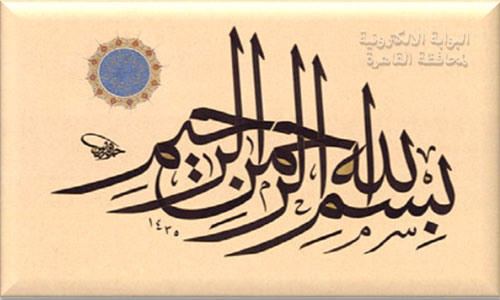 البوابة الالكترونية
لمحافظة القاهرة
بسم الله الرحمن الرحيم
١٤٣٥